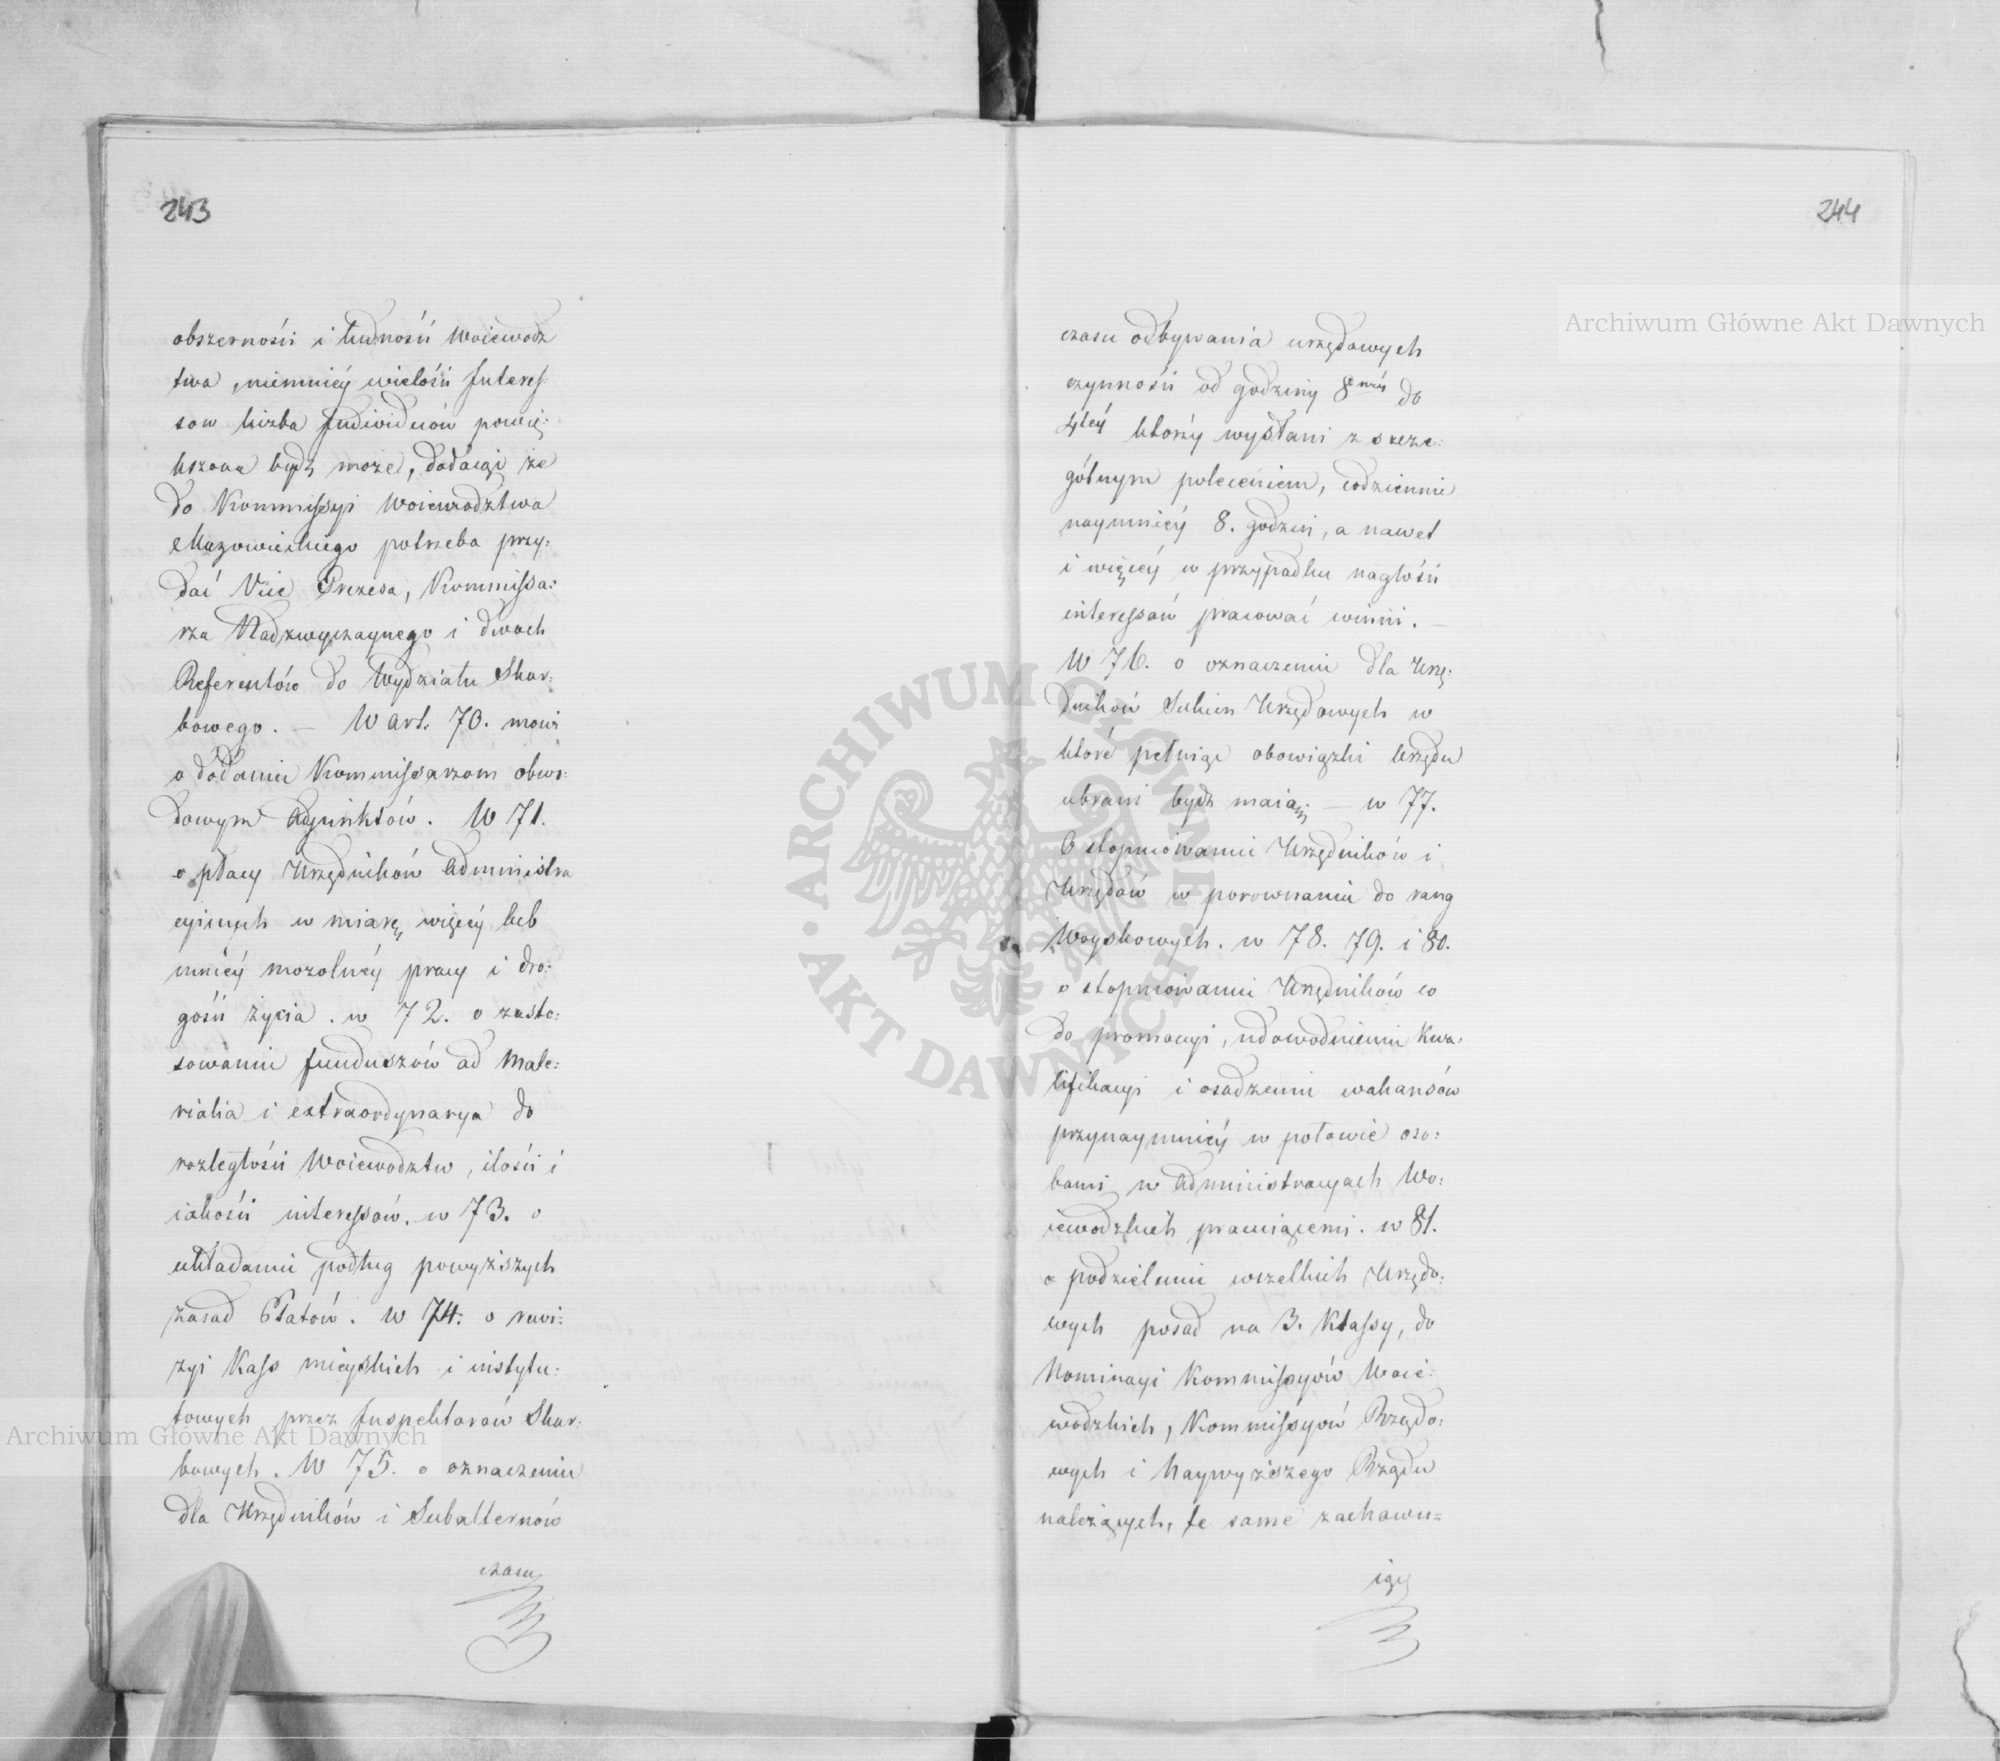 243
obszerności i ludności Woiewodz
twa, niemniéy wielości Interes-
sow liczba Individuów powię-
kszona bydź może, dodaiąc że
do Kommissyi Woiewodztwa
Mazowieckiego potrzeba przy-
dać Vice Prezesa, Kommissa-
rza Nadzwyczaynego i dwoch
Referentów do Wydziału Skar-
bowego. — W art. 70. mowi
o dodaniu Kommissarzom obwo-
dowym Adjunktów. W 71.
o płacy Urzędników Administra
cyinych w miarę więcéy lub
mniéy mozolnéy pracy i dro-
gości życia. w 72. o zasto-
sowaniu funduszów ad Mate-
rialia i extraordynarya do
rozległości Woiewodztw, ilości i
iakości interessów. w 73. o
układaniu podług powyższych
zasad Etatów. W 74. o rewi-
zyi Kass mieyskich i instytu-
towych przez Inspektorów Skar-
bowych. W 75. o oznaczeniu
dla Urzędników i Subalternów
czasu
244
czasu odbywania urzędowych
czynności od godziny 8méy do
4téy którzy wysłani z szcze-
gólnym poleceniem, codziennie
naymniéy 8. godzin, a nawet
i więcéy w przypadku nagłości
interessów pracować winni. —
W 76. o oznaczeniu dla Urzę-
dników Sukien Urzędowych w
które pełniąc obowiązki Urzędu
ubrani bydź maią; — w 77.
O stopniowaniu Urzędników i
Urzędów w porownaniu do rang
Woyskowych. w 78. 79. i 80.
o stopniowaniu Urzędników co
do promocyi, udowodnieniu Kwa-
lifikacyi i osadzeniu wakansów
przynaymniéy w połowie oso-
bami w Administracyach Wo-
iewodzkich pracuiącemi. w 81.
o podzieleniu wszelkich Urzędo-
wych posad na 3. Klassy, do
Nominacyi Kommissyów Woie-
wodzkich, Kommissyów Rządo-
wych i Naywyższego Rządu
należących, te same zachowu-
iąc
Archiwum Główne Akt Dawnych
Archiwum Główne Akt Dawnych
ARCHIWUM GŁÓWNE · AKT DAWNYCH ·